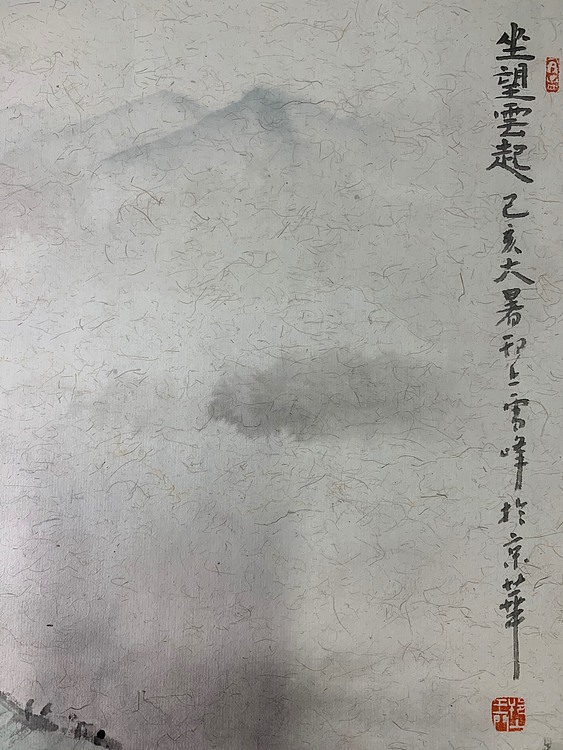 坐望雲起 己亥大暑 卯上雪峰於京華